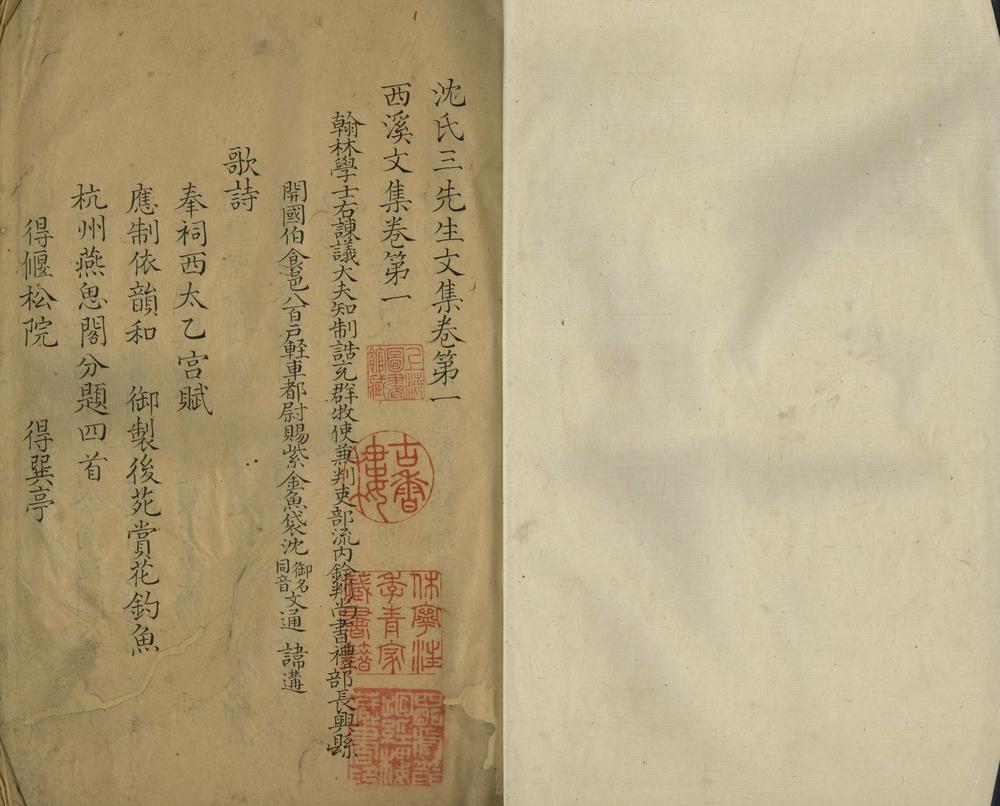 沈氏三先生文集卷第一
西溪文集卷第一
翰林學士右諫議大夫知制誥充群牧使兼判吏部流内銓判尚書禮部長興縣
開國伯食邑八百戸輕車都尉賜紫金魚袋沈御名同音文通 諱遘
歌詩
奉祠西太乙宮賦
應制依韻和 御製後苑賞花釣魚
杭州燕思閣分題四首
得偃松院 得巽亭
古香樓
休寧汪季青家藏書籍